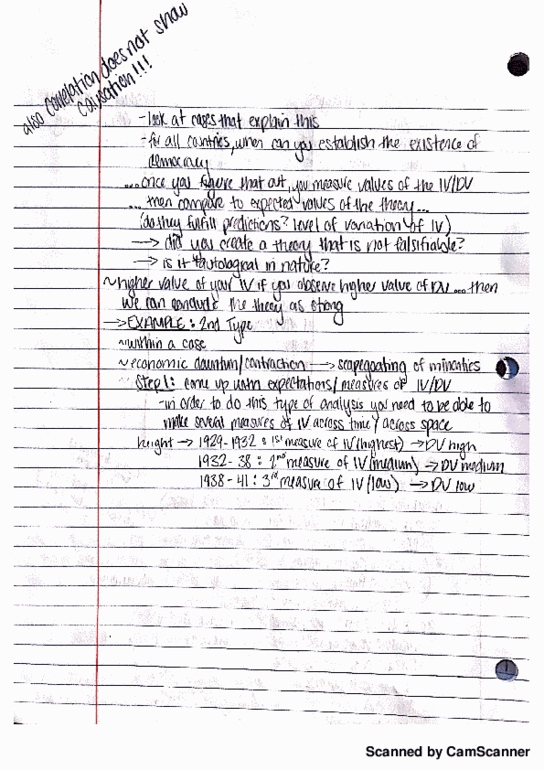 also correlation does not show
causation!!!
- look at cases that explain this
- for all countries, when can you establish the existence of
democracy
...once you figure that out, you measure values of the IV/DV
...then compare to expected values of the theory...
(do they fulfill predictions? level of variation of IV)
→ did you create a theory that is not falsifiable?
→ is it tautological in nature?
~higher value of your IV if you observe higher value of DV...then
we can conclude the theory as strong
→EXAMPLE: 2nd Type
~within a case
~economic downturn/contraction → scapegoating of minorities
~Step 1: come up with expectations/measures of IV/DV
-in order to do this type of analysis you need to be able to
make several measures of IV across time/across space
height → 1929-1932: 1st measure of IV (highest) → DV high
1932-38: 2nd measure of IV (medium) → DV medium
1938-41: 3rd measure of IV (low) → DV low
Scanned by CamScanner